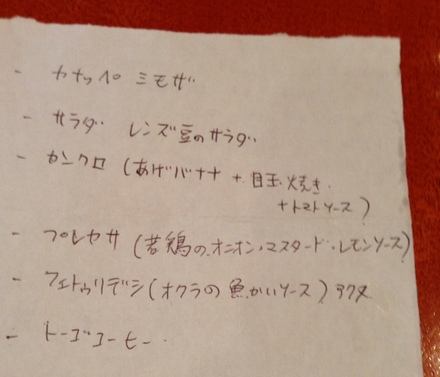 - カナッペ ミモザ
- サラダ レンズ豆のサラダ
- カンクロ (あげバナナ + 目玉焼き
+トマトソース)
- プレヤサ (若鶏の、オニオン・マスタード・レモンソース)
- フェトゥリデシ(オクラの魚かいソース)
- トーゴコーヒー